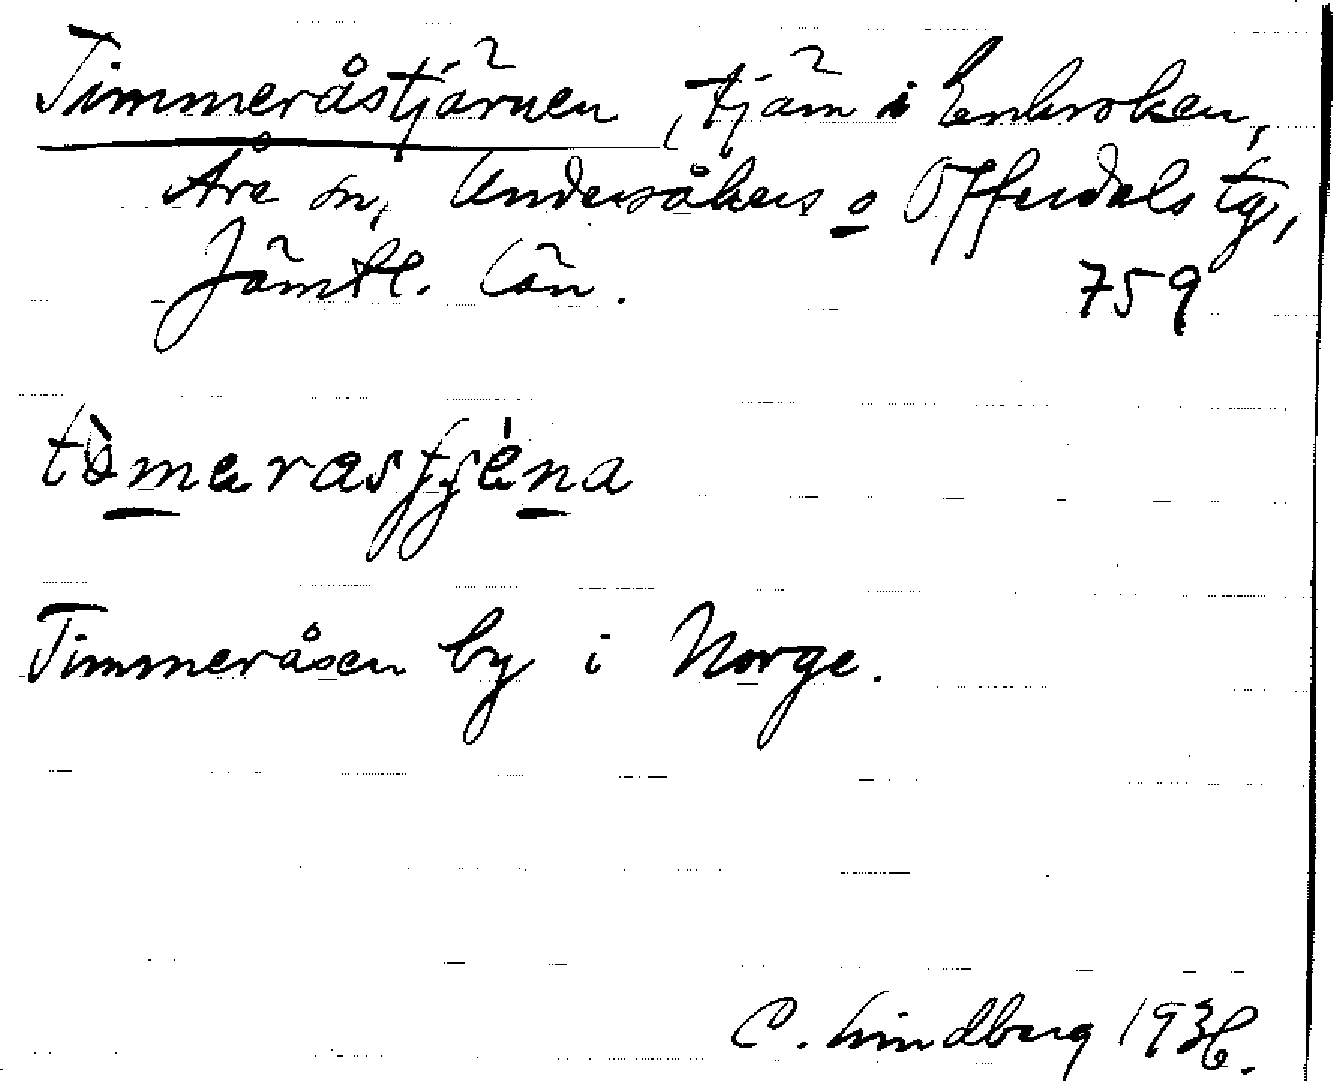 Timmeråstjärnen, tjärn i Enkroken,
Åre sn, Undersåkers o Offerdals tg,
Jämtl. län. 759
Timmeråsen by i Norge.
C. Lindberg 1936.